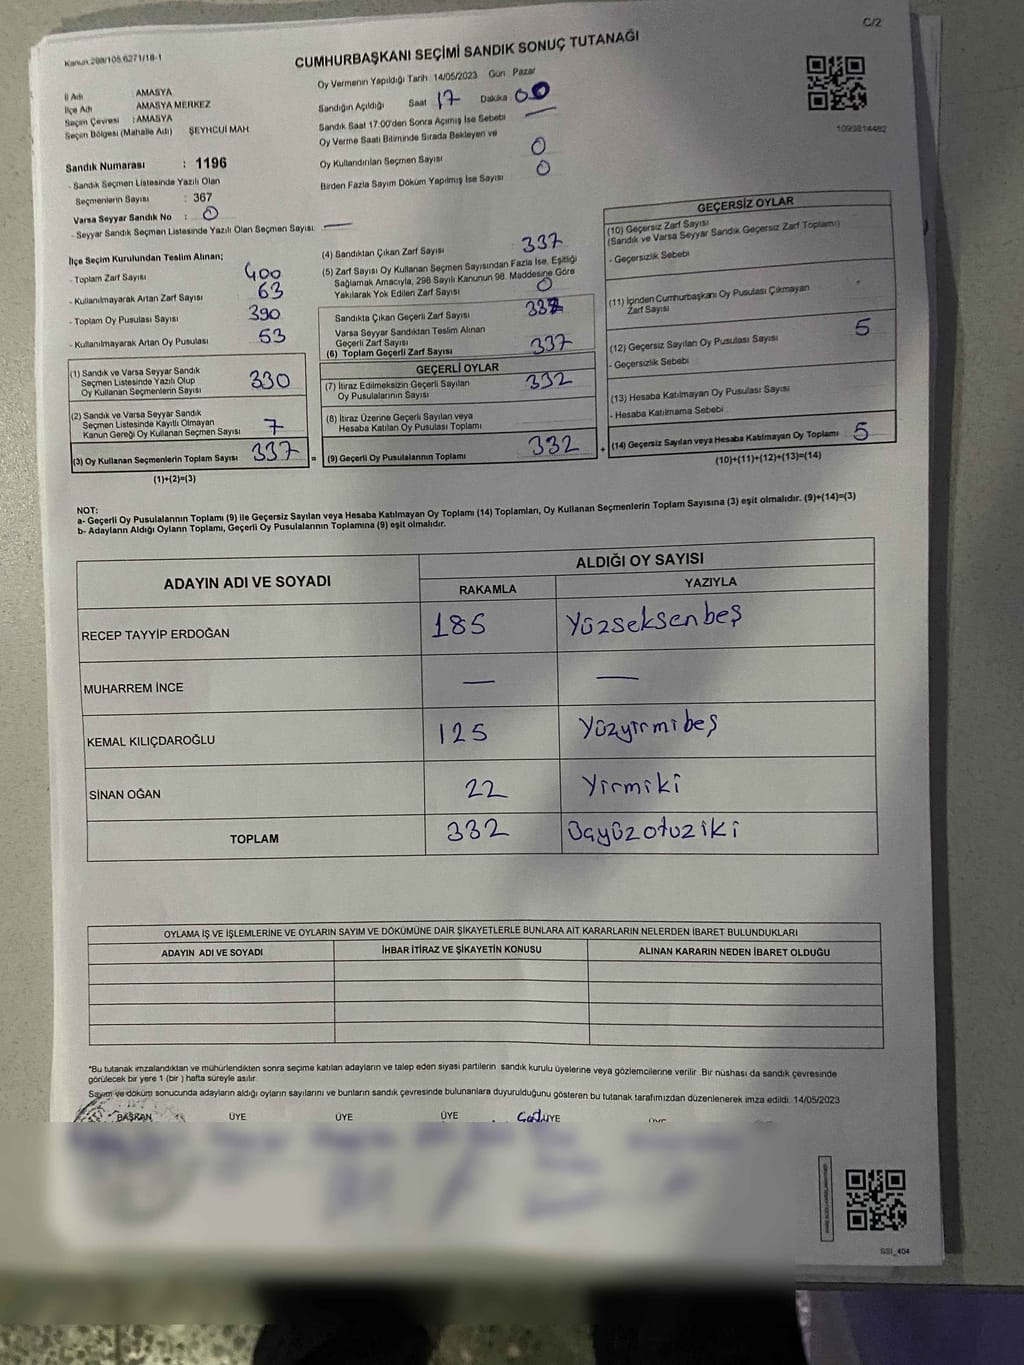 C/2
Kanun 298/105.6271/18-1
CUMHURBAŞKANI SEÇİMİ SANDIK SONUÇ TUTANAĞI
İl Adı : AMASYA
İlçe Adı AMASYA MERKEZ
Seçim Çevresi : AMASYA
Seçim Bölgesi (Mahalle Adı) ŞEYHCUİ MAH.
Oy Vermenin Yapıldığı Tarih 14/05/2023 Gün Pazar
Sandığın Açıldığı Saat 17 Dakika 00
Sandık Saat 17:00'den Sonra Açımış İse Sebebi —
Oy Verme Saati Bitiminde Sırada Bekleyen ve
Oy Kullandırılan Seçmen Sayısı 0
Birden Fazla Sayım Döküm Yapılmış İse Sayısı 0
1093814482
Sandık Numarası : 1196
- Sandık Seçmen Listesinde Yazılı Olan
Seçmenlerin Sayısı : 367
Varsa Seyyar Sandık No : 0
- Seyyar Sandık Seçmen Listesinde Yazılı Olan Seçmen Sayısı: —
İlçe Seçim Kurulundan Teslim Alınan;
- Toplam Zarf Sayısı 400
- Kullanılmayarak Artan Zarf Sayısı 63
- Toplam Oy Pusulası Sayısı 390
- Kullanılmayarak Artan Oy Pusulası 53
(1) Sandık ve Varsa Seyyar Sandık
Seçmen Listesinde Yazılı Olup
Oy Kullanan Seçmenlerin Sayısı 330
(2) Sandık ve Varsa Seyyar Sandık
Seçmen Listesinde Kayıtlı Olmayan
Kanun Gereği Oy Kullanan Seçmen Sayısı 7
(3) Oy Kullanan Seçmenlerin Toplam Sayısı 337
(1)+(2)=(3)
(4) Sandıktan Çıkan Zarf Sayısı 337
(5) Zarf Sayısı Oy Kullanan Seçmen Sayısından Fazla İse, Eşitliği
Sağlamak Amacıyla, 298 Sayılı Kanunun 98. Maddesine Göre
Yakılarak Yok Edilen Zarf Sayısı 0
Sandıkta Çıkan Geçerli Zarf Sayısı 337
Varsa Seyyar Sandıktan Teslim Alınan
Geçerli Zarf Sayısı
(6) Toplam Geçerli Zarf Sayısı 337
GEÇERLİ OYLAR
(7) İtiraz Edilmeksizin Geçerli Sayılan
Oy Pusulalarının Sayısı 332
(8) İtiraz Üzerine Geçerli Sayılan veya
Hesaba Katılan Oy Pusulası Toplamı
= (9) Geçerli Oy Pusulalarının Toplamı 332
GEÇERSİZ OYLAR
(10) Geçersiz Zarf Sayısı
(Sandık ve Varsa Seyyar Sandık Geçersiz Zarf Toplamı)
- Geçersizlik Sebebi
(11) İçinden Cumhurbaşkanı Oy Pusulası Çıkmayan
Zarf Sayısı
(12) Geçersiz Sayılan Oy Pusulası Sayısı 5
- Geçersizlik Sebebi
(13) Hesaba Katılmayan Oy Pusulası Sayısı
- Hesaba Katılmama Sebebi
+ (14) Geçersiz Sayılan veya Hesaba Katılmayan Oy Toplamı 5
(10)+(11)+(12)+(13)=(14)
NOT:
a- Geçerli Oy Pusulalarının Toplamı (9) ile Geçersiz Sayılan veya Hesaba Katılmayan Oy Toplamı (14) Toplamları, Oy Kullanan Seçmenlerin Toplam Sayısına (3) eşit olmalıdır. (9)+(14)=(3)
b- Adayların Aldığı Oyların Toplamı, Geçerli Oy Pusulalarının Toplamına (9) eşit olmalıdır.
ADAYIN ADI VE SOYADI ALDIĞI OY SAYISI
RAKAMLA YAZIYLA
RECEP TAYYİP ERDOĞAN 185 Yüzseksenbeş
MUHARREM İNCE — —
KEMAL KILIÇDAROĞLU 125 Yüzyirmibeş
SİNAN OĞAN 22 Yirmiki
TOPLAM 332 Üçyüzotuziki
OYLAMA İŞ VE İŞLEMLERİNE VE OYLARIN SAYIM VE DÖKÜMÜNE DAİR ŞİKAYETLERLE BUNLARA AİT KARARLARIN NELERDEN İBARET BULUNDUKLARI
ADAYIN ADI VE SOYADI İHBAR İTİRAZ VE ŞİKAYETİN KONUSU ALINAN KARARIN NEDEN İBARET OLDUĞU
*Bu tutanak imzalandıktan ve mühürlendikten sonra seçime katılan adayların ve talep eden siyasi partilerin sandık kurulu üyelerine veya gözlemcilerine verilir .Bir nüshası da sandık çevresinde
görülecek bir yere 1 (bir ) hafta süreyle asılır.
Sayım ve döküm sonucunda adayların aldığı oyların sayılarını ve bunların sandık çevresinde bulunanlara duyurulduğunu gösteren bu tutanak tarafımızdan düzenlenerek imza edildi. 14/05/2023
BAŞKAN ÜYE ÜYE ÜYE ÜYE
SSI_404